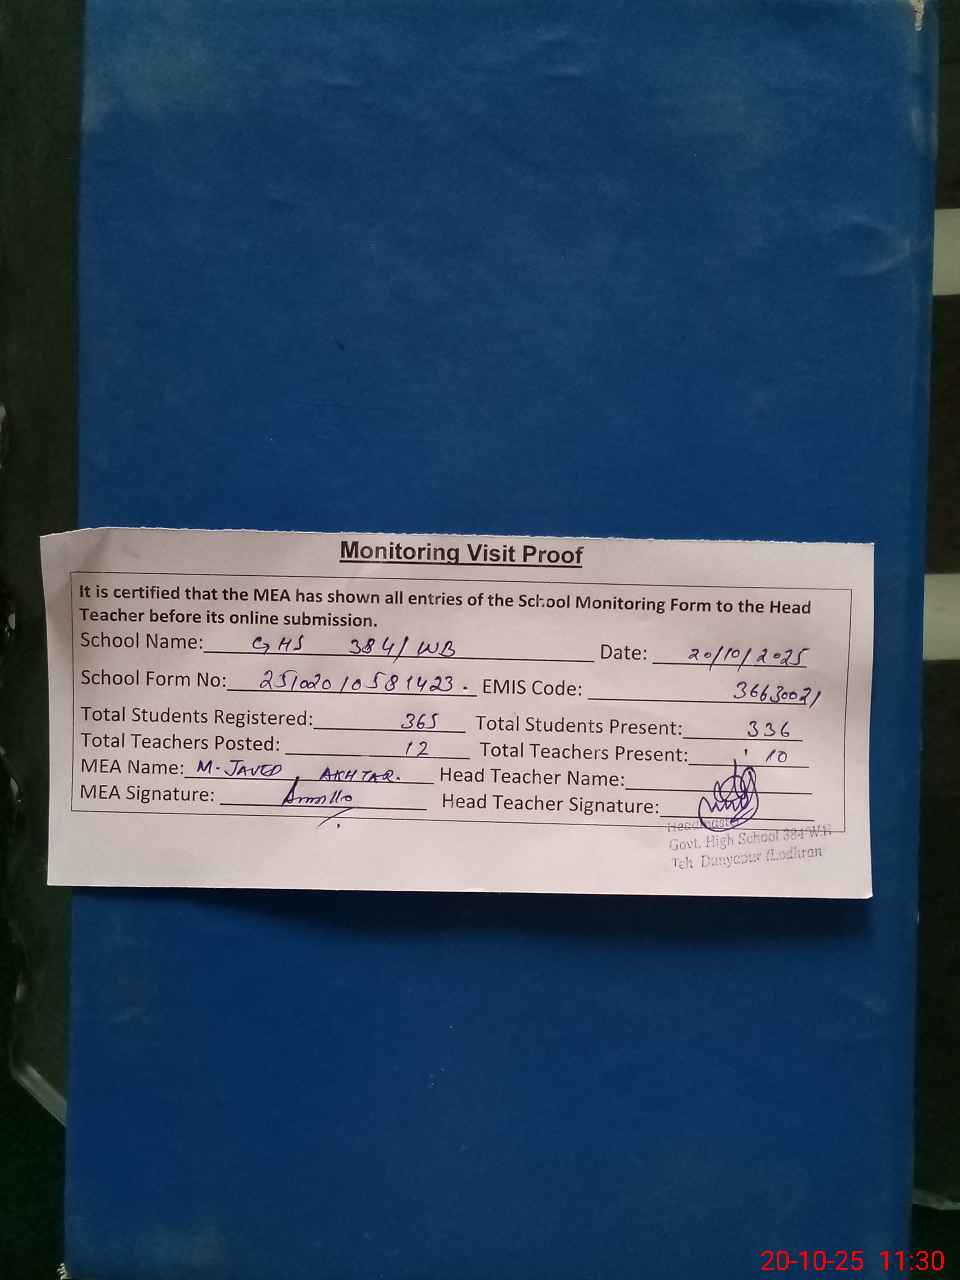 Monitoring Visit Proof
It is certified that the MEA has shown all entries of the School Monitoring Form to the Head
Teacher before its online submission.
School Name: GHS 384/WB Date: 20/10/2025
School Form No: 25102010581423. EMIS Code: 36630021
Total Students Registered: 365 Total Students Present: 336
Total Teachers Posted: 12 Total Teachers Present: 10
MEA Name: M. JAVED AKHTAR. Head Teacher Name:
MEA Signature: Head Teacher Signature:
Headmaster
Govt. High School 384/WB
Teh Dunyapur (Lodhran
20-10-25 11:30